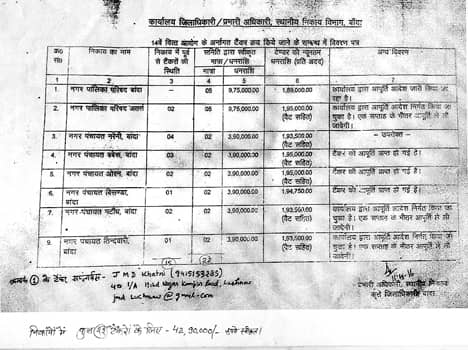 कार्यालय जिलाधिकारी/प्रभारी अधिकारी, स्थानीय निकाय विभाग, बाँदा
14वें वित्त आयोग के अन्तर्गत टैंकर क्रय किये जाने के सम्बन्ध में विवरण पत्र
क्र0 सं0 निकाय का नाम निकाय में पूर्व से टैंकरों की स्थिति समिति द्वारा स्वीकृत मात्रा / धनराशि टेण्डर की न्यूनतम धनराशि (प्रति अदद) अन्य विवरण
मात्रा धनराशि
1 2 3 4 5 6 7
1. नगर पालिका परिषद बांदा — 05 9,75,000.00 1,89,000.00 कार्यालय द्वारा आपूर्ति आदेश जारी किया जा रहा है।
2. नगर पालिका परिषद अतर्रा 02 05 9,75,000.00 1,95,000.00 (वैट सहित) कार्यालय द्वारा आपूर्ति आदेश निर्गत किया जा चुका है। एक सप्ताह के भीतर आपूर्ति ले ली जायेगी।
3. नगर पंचायत नरैनी, बांदा 04 02 3,90,000.00 1,93,500.00 (वैट सहित) – उपरोक्त –
4. नगर पंचायत बबेरू, बांदा 03 02 3,90,000.00 1,95,000.00 (वैट सहित) टैंकर की आपूर्ति प्राप्त हो गई है।
5. नगर पंचायत ओरन, बांदा 02 02 3,90,000.00 1,95,000.00 (वैट सहित) टैंकर की आपूर्ति प्राप्त हो गई है।
6. नगर पंचायत बिसण्डा, बांदा 01 02 3,90,000.00 1,94,750.00 (वैट सहित) टैंकर की आपूर्ति प्राप्त हो गई है।
7. नगर पंचायत मटौंध, बांदा 02 02 3,90,000.00 (वैट सहित) कार्यालय द्वारा आपूर्ति आदेश निर्गत किया जा चुका है। एक सप्ताह के भीतर आपूर्ति ले ली जायेगी।
9. नगर पंचायत तिन्दवारी, बांदा 01 02 3,90,000.00 (वैट सहित) कार्यालय द्वारा आपूर्ति आदेश निर्गत किया जा चुका है। एक सप्ताह के भीतर आपूर्ति ले ली जायेगी।
15 22
① के टैंकर J M D Khatri (9415153235)
40 1/A Hind Nagar Kanpur Road, Lucknow
jmd lucknow @ gmail.com
प्रभारी अधिकारी, स्थानीय निकाय
कृते जिलाधिकारी बांदा
निकायों में 42,90,000/-